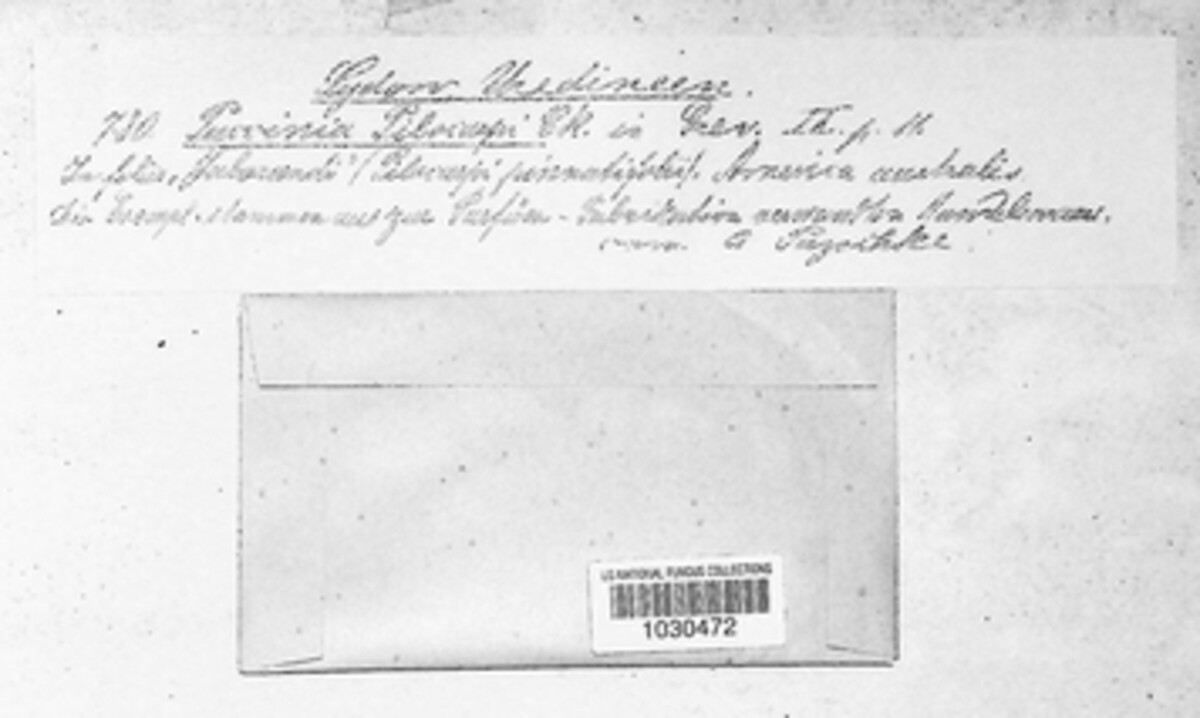 Sydow, Uredineen.
780. Puccinia Pilocarpi Ck. in Grev. IX. p. 11
In foliis „Jaborandi" (Pilocarpi pinnatifolii). America australis.
Die Exempl. stammen aus zur Parfüm-Fabrikation
comm. G
US NATIONAL FUNGUS COLLECTIONS
1030472